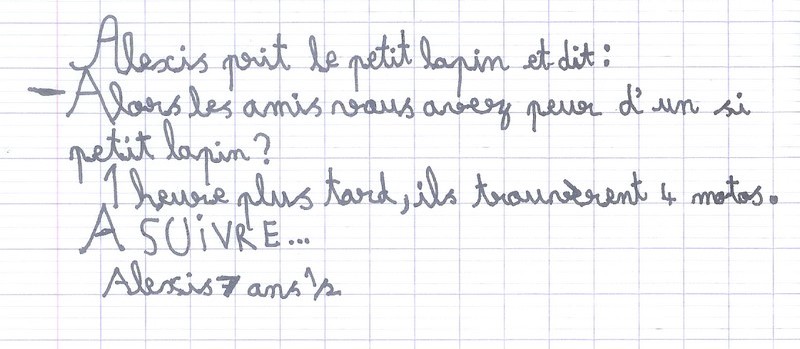 Alexis prit le petit lapin et dit :
- Alors les amis vous avez peur d'un si
petit lapin ?
1 heure plus tard, ils trouvèrent 4 motos.
A SUiVRE...
Alexis 7 ans 1/2